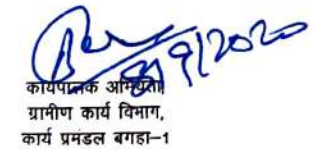 8/9/2020
कार्यपालक अभियंता
ग्रामीण कार्य विभाग,
कार्य प्रमंडल बगहा-1